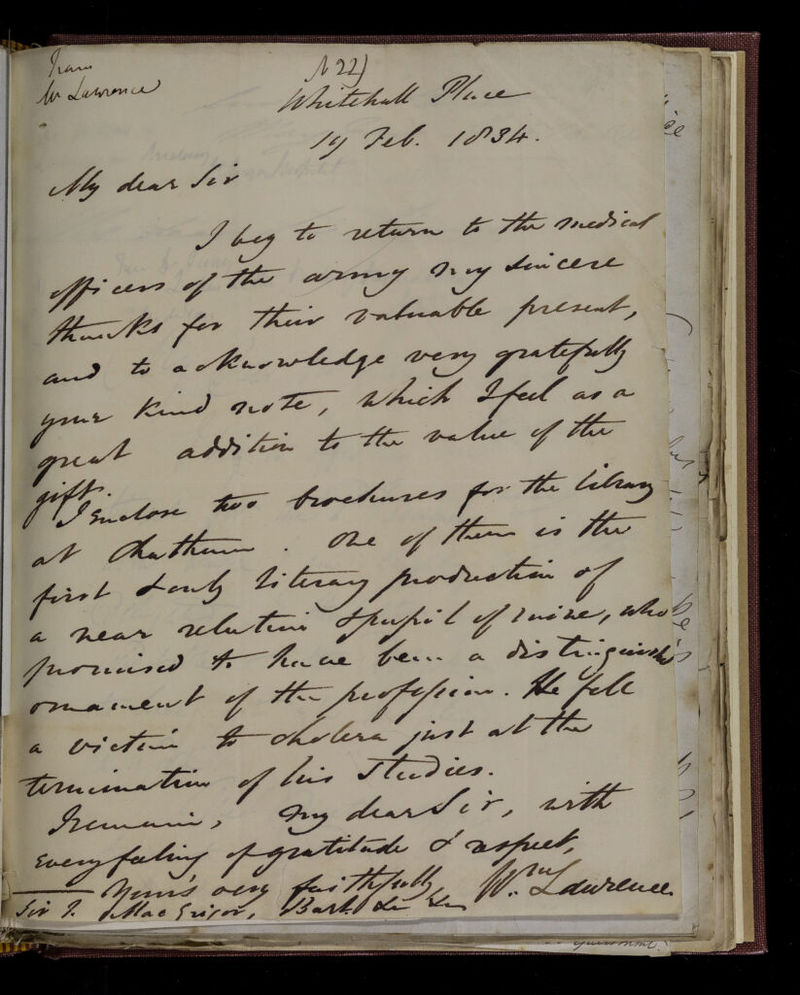 From
Mr Lawrence
N 22)
Whitehall Place
19 Feb. 1834.
My dear Sir
I beg to return to the medical
officers of the army my sincere
thanks for their valuable present,
and to acknowledge very gratefully
your kind note, which I feel as a
great addition to the value of the
gift.
I enclose two brochures for the library
at Chatham. One of them is the
first & only literary production of
a near relation & pupil of mine, who
promised to have been a distinguished
ornament of the profession. He fell
a victim to cholera just at the
termination of his studies.
I remain, my dear Sir, with
every feeling of gratitude & respect,
Yours very faithfully
Wm. Lawrence
Sir J. MacGrigor, Bart. &c &c